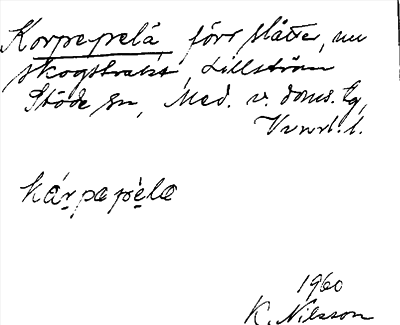 Korpepelå, förr slåtter, nu
skogstrakt, Lillström
Stöde sn, Med. v. doms. tg,
Vnrl. l.
kårpapela
1960
K. Nilsson